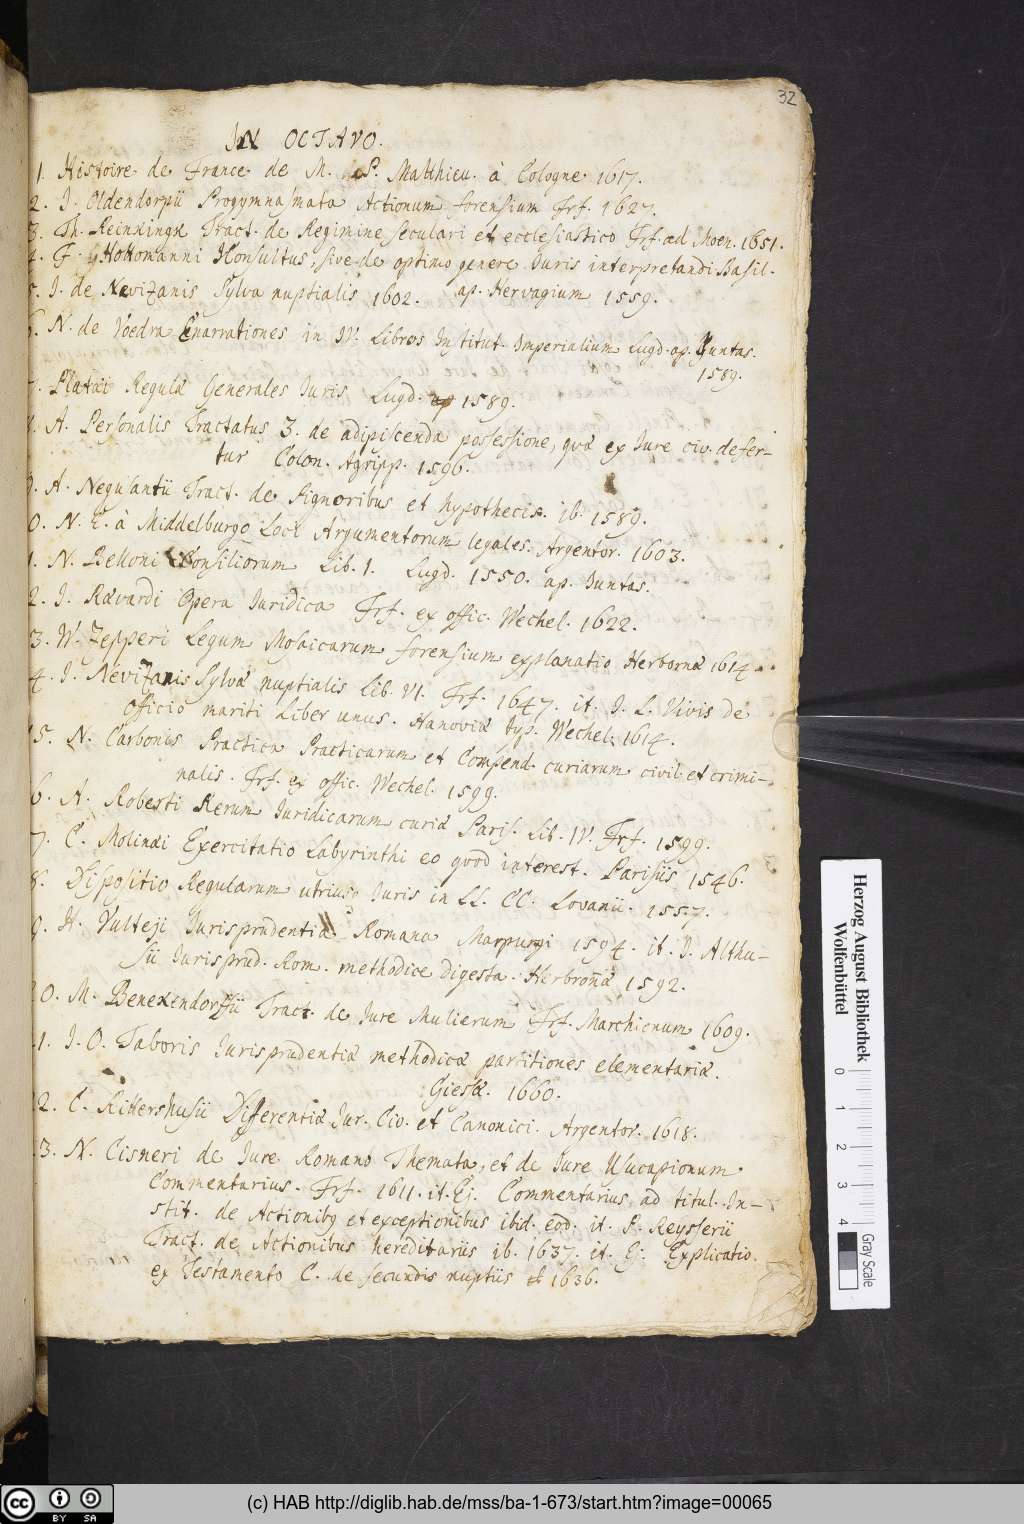 32
IN OCTAVO.
1. Histoire de France de M. P. Matthieu. à Cologne 1617.
2. J. Oldendorpii Progymnasmata Actionum forensium Frf. 1627.
3. Th. Reinkingk Tract. de Regimine seculari et ecclesiastico Frf. ad Moen. 1651.
4. F. Hottomanni JConsultus, sive de optimo genere Juris interpretandi Basil.
ap. Hervagium 1559.
5. J. de Nevizanis Sylva nuptialis 1602.
6. N. de Voedra Enarrationes in IV. Libros Institut. Imperialium Lugd. ap. Juntas.
1589.
7. Plataei Regulae Generales Juris Lugd. 1589.
8. A. Personalis Tractatus 3. de adipiscenda possessione, quae ex Jure civ. defer-
tur Colon. Agripp. 1596.
9. A. Negusantii Tract. de Pignoribus et hypothecis. ib. 1589.
0. N. E. à Middelburgo Loci Argumentorum legales. Argentor. 1603.
1. N. Belloni Consiliorum Lib. 1. Lugd. 1550. ap. Juntas.
2. J. Raevardi Opera Juridica Frf. ex offic. Wechel. 1622.
3. W. Zepperi Legum Mosaicarum forensium explanatio Herbornae 1614.
4. J. Nevizanis Sylvae nuptialis Lib. VI. Frf. 1647. it. J. L. Vivis de
officio mariti Liber unus. Hanoviae typ. Wechel. 1614.
5. N. Carbonis Practica Practicarum et Compend. curiarum civil. et crimi-
nalis. Frf. ex offic. Wechel. 1599.
6. A. Roberti Rerum Juridicarum curiae Paris. Lib. IV. Frf. 1599.
7. C. Molinaei Exercitatio Labyrinthi eo quod interest. Parisiis 1546.
8. Dispositio Regularum utriusq Juris in LL. CC. Lovanii. 1557.
9. H. Vulteji Jurisprudentia Romana Marpurgi 1594. it. J. Althu-
sii Jurisprud. Rom. methodice digesta. Herbornae 1592.
0. M. Benekendorffii Tract. de Jure Mulierum Frf. Marchionum 1609.
1. J. O. Taboris Jurisprudentiae methodicae partitiones elementariae.
Giesae. 1660.
2. C. Rittershusii Differentiae Jur. Civ. et Canonici. Argentor. 1618.
3. N. Cisneri de Jure Romano Themata, et de Jure Usucapionum
Commentarius. Frf. 1611. it. Ej. Commentarius ad titul. In-
stit. de Actionibq et exceptionibus ibid. eod. it. P. Reysserii
Tract. de Actionibus hereditariis ib. 1637. it. Ej. Explicatio
ex Testamento C. de secundis nuptiis 1636.
Herzog August Bibliothek
Wolfenbüttel
0 1 2 3 4
Gray Scale
(c) HAB http://diglib.hab.de/mss/ba-1-673/start.htm?image=00065
cc BY SA